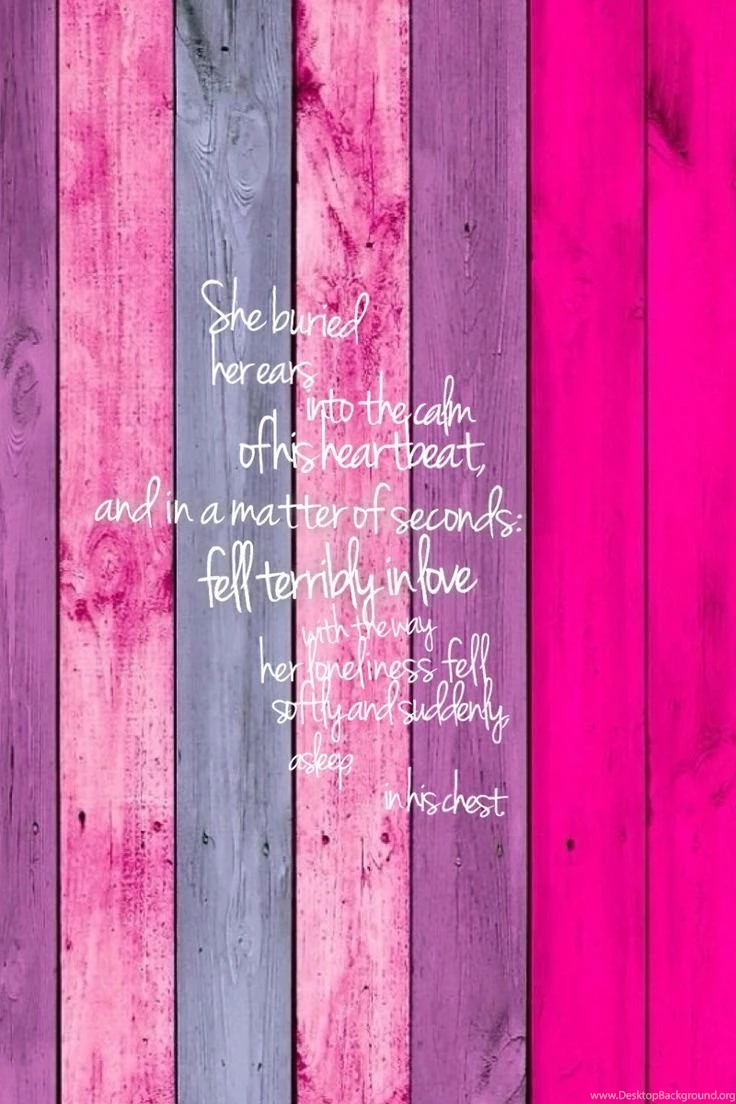 She buried
her ears
into the calm
of his heartbeat,
and in a matter of seconds:
fell terribly in love
with the way
her loneliness fell
softly and suddenly,
asleep
in his chest
www.DesktopBackground.org